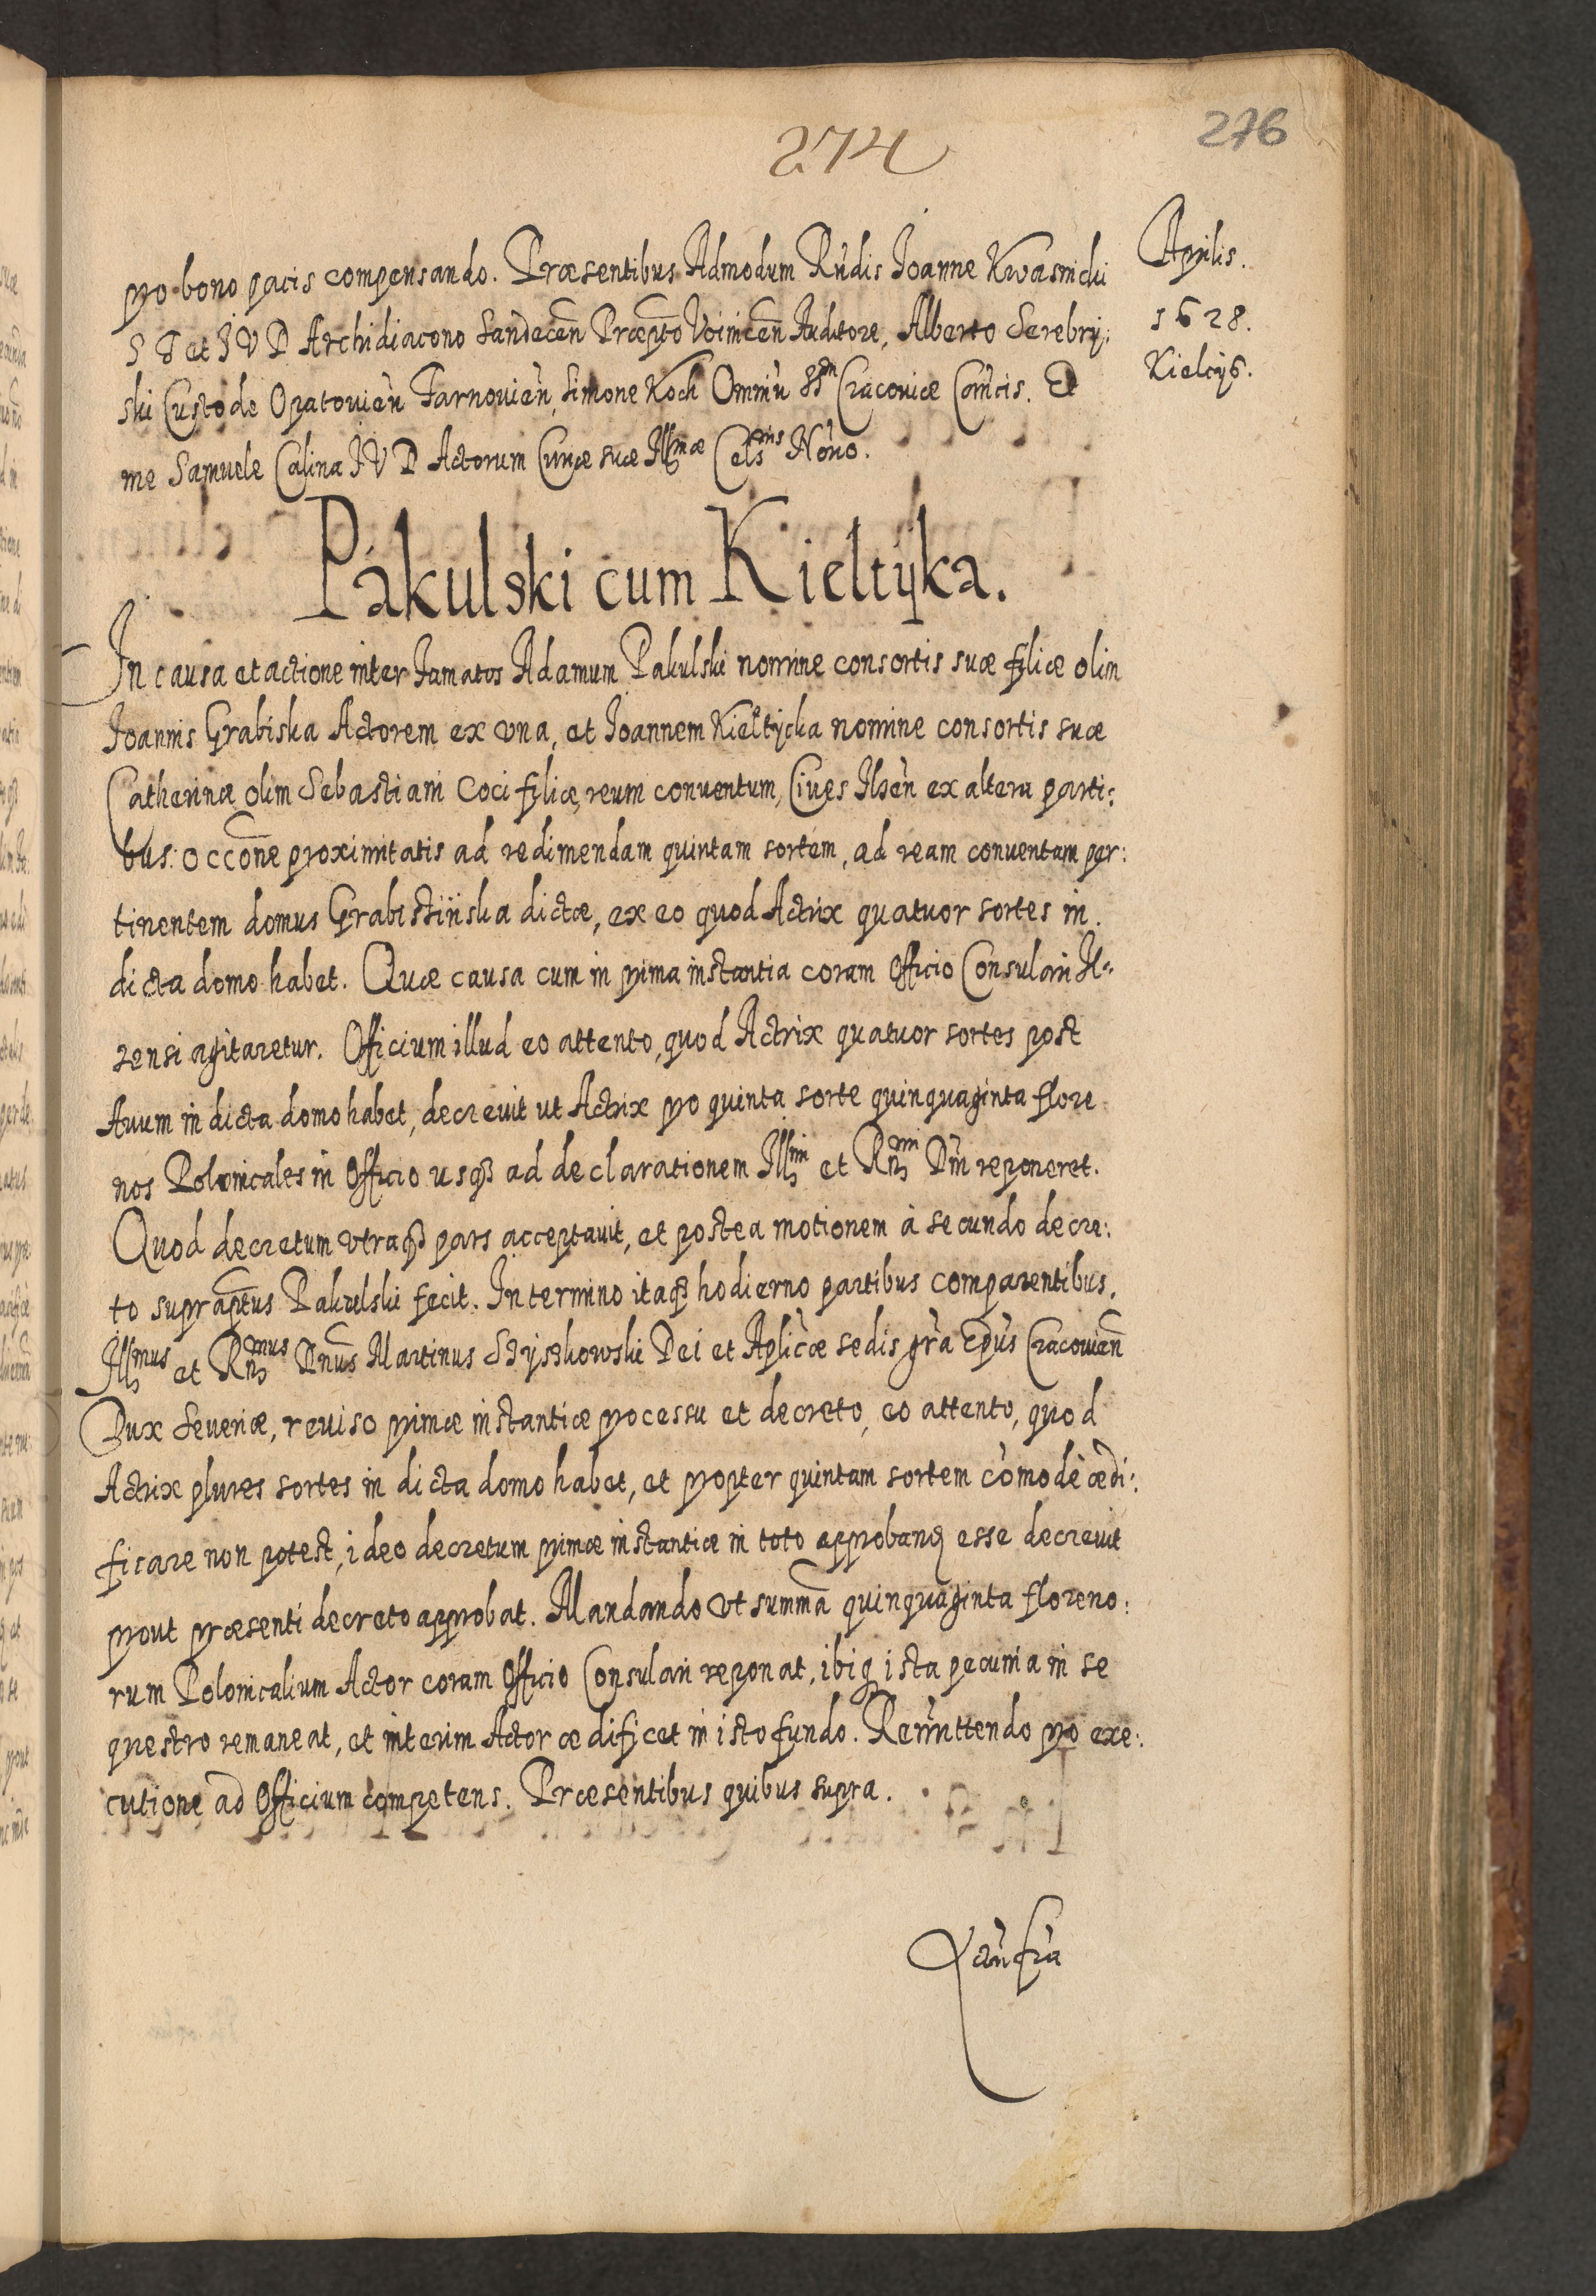 274
276
Aprilis.
1628.
Kielcijs.
pro bono pacis compensando. Præsentibus Admodum Rñdis Joanne Kwasnicki
S T et J V D Archidiacono Sandecen̄ Præpto Voinicen̄ Auditore, Alberto Serebry:
ski Custode Opatovien̄ Tarnovien̄, Simone Koch Omniũ SStm Cracoviæ Canōcis. Et
me Samuele Calina J V D Actorum Curiæ suæ Illmæ Celsnis Nōrio.
Pakulski cum Kieltÿka.
In causa et actione inter famatos Adamum Pakulski nomine consortis suæ filiæ olim
Joannis Grabiska Actorem ex una, et Joannem Kieltycka nomine consortis suæ
Catherinæ olim Sebastiani Coci filiæ, reum conventum, Cives Ilzen̄ ex altera parti:
bus: occōne proximitatis ad redimendam quintam sortem, ad ream conventam per:
tinentem domus Grabistiĩska dictæ, ex eo quod Actrix quatuor sortes in
dicta domo habet. Quæ causa cum in prima instantia coram Officio Consulari Il=
zensi agitaretur. Officium illud eo attento, quod Actrix quatuor sortes post
Avum in dicta domo habet, decrevit ut Actrix pro quinta sorte quinquaginta flore
nos Polonicales in Officio usq3 ad declarationem Illmi et Rñmi Dñi reponeret.
Quod decretum utraq3 pars acceptavit, et postea motionem à secundo decre:
to supraptus Pakulski fecit. In termino itaq3 hodierno partibus comparentibus.
Illmus et Rñmus Dnūs Martinus Szyszkowski Dei et Aplicæ sedis grã Epũs Cracovien̄
Dux Severiæ, reviso primæ instantiæ processu et decreto, eo attento, quod
Actrix plures sortes in dicta domo habet, et propter quintam sortem còmodè ædi:
ficare non potest, ideo decretum primæ instantiæ in toto approband esse decrevit
prout præsenti decreto approbat. Mandando ut summā quinquaginta floreno:
rum Polonicalium Actor coram Officio Consulari reponat, ibiq ista pecunia in se
questro remaneat, et interim Actor ædificet in isto fundo. Remittendo pro exe:
cutione ad Officium competens. Præsentibus quibus supra.